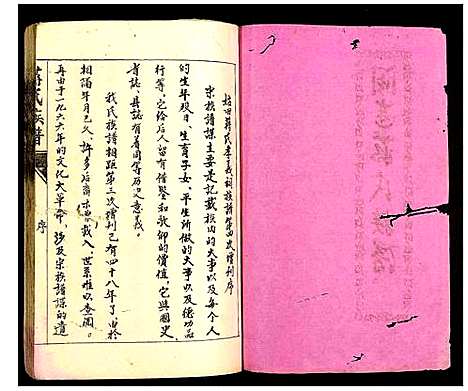 蒋氏孝义祠族谱第四次增刊序
宗族谱谍主要是记载族内的大事以及每个人
的生年殁日、生育子女、平生所做的大事以及德功品
行等，它给后人留有借鉴和敬仰的价值，它与国史
省誌、县誌有着同等历史意义。
我氏族谱相距第三次增刊已有四十八年了，由於
相隔年月已久，许多后裔未载入，世系难以查阅。
再由于一九六六年的文化大革命，涉及宗族谱谍的遗
氏族谱
序